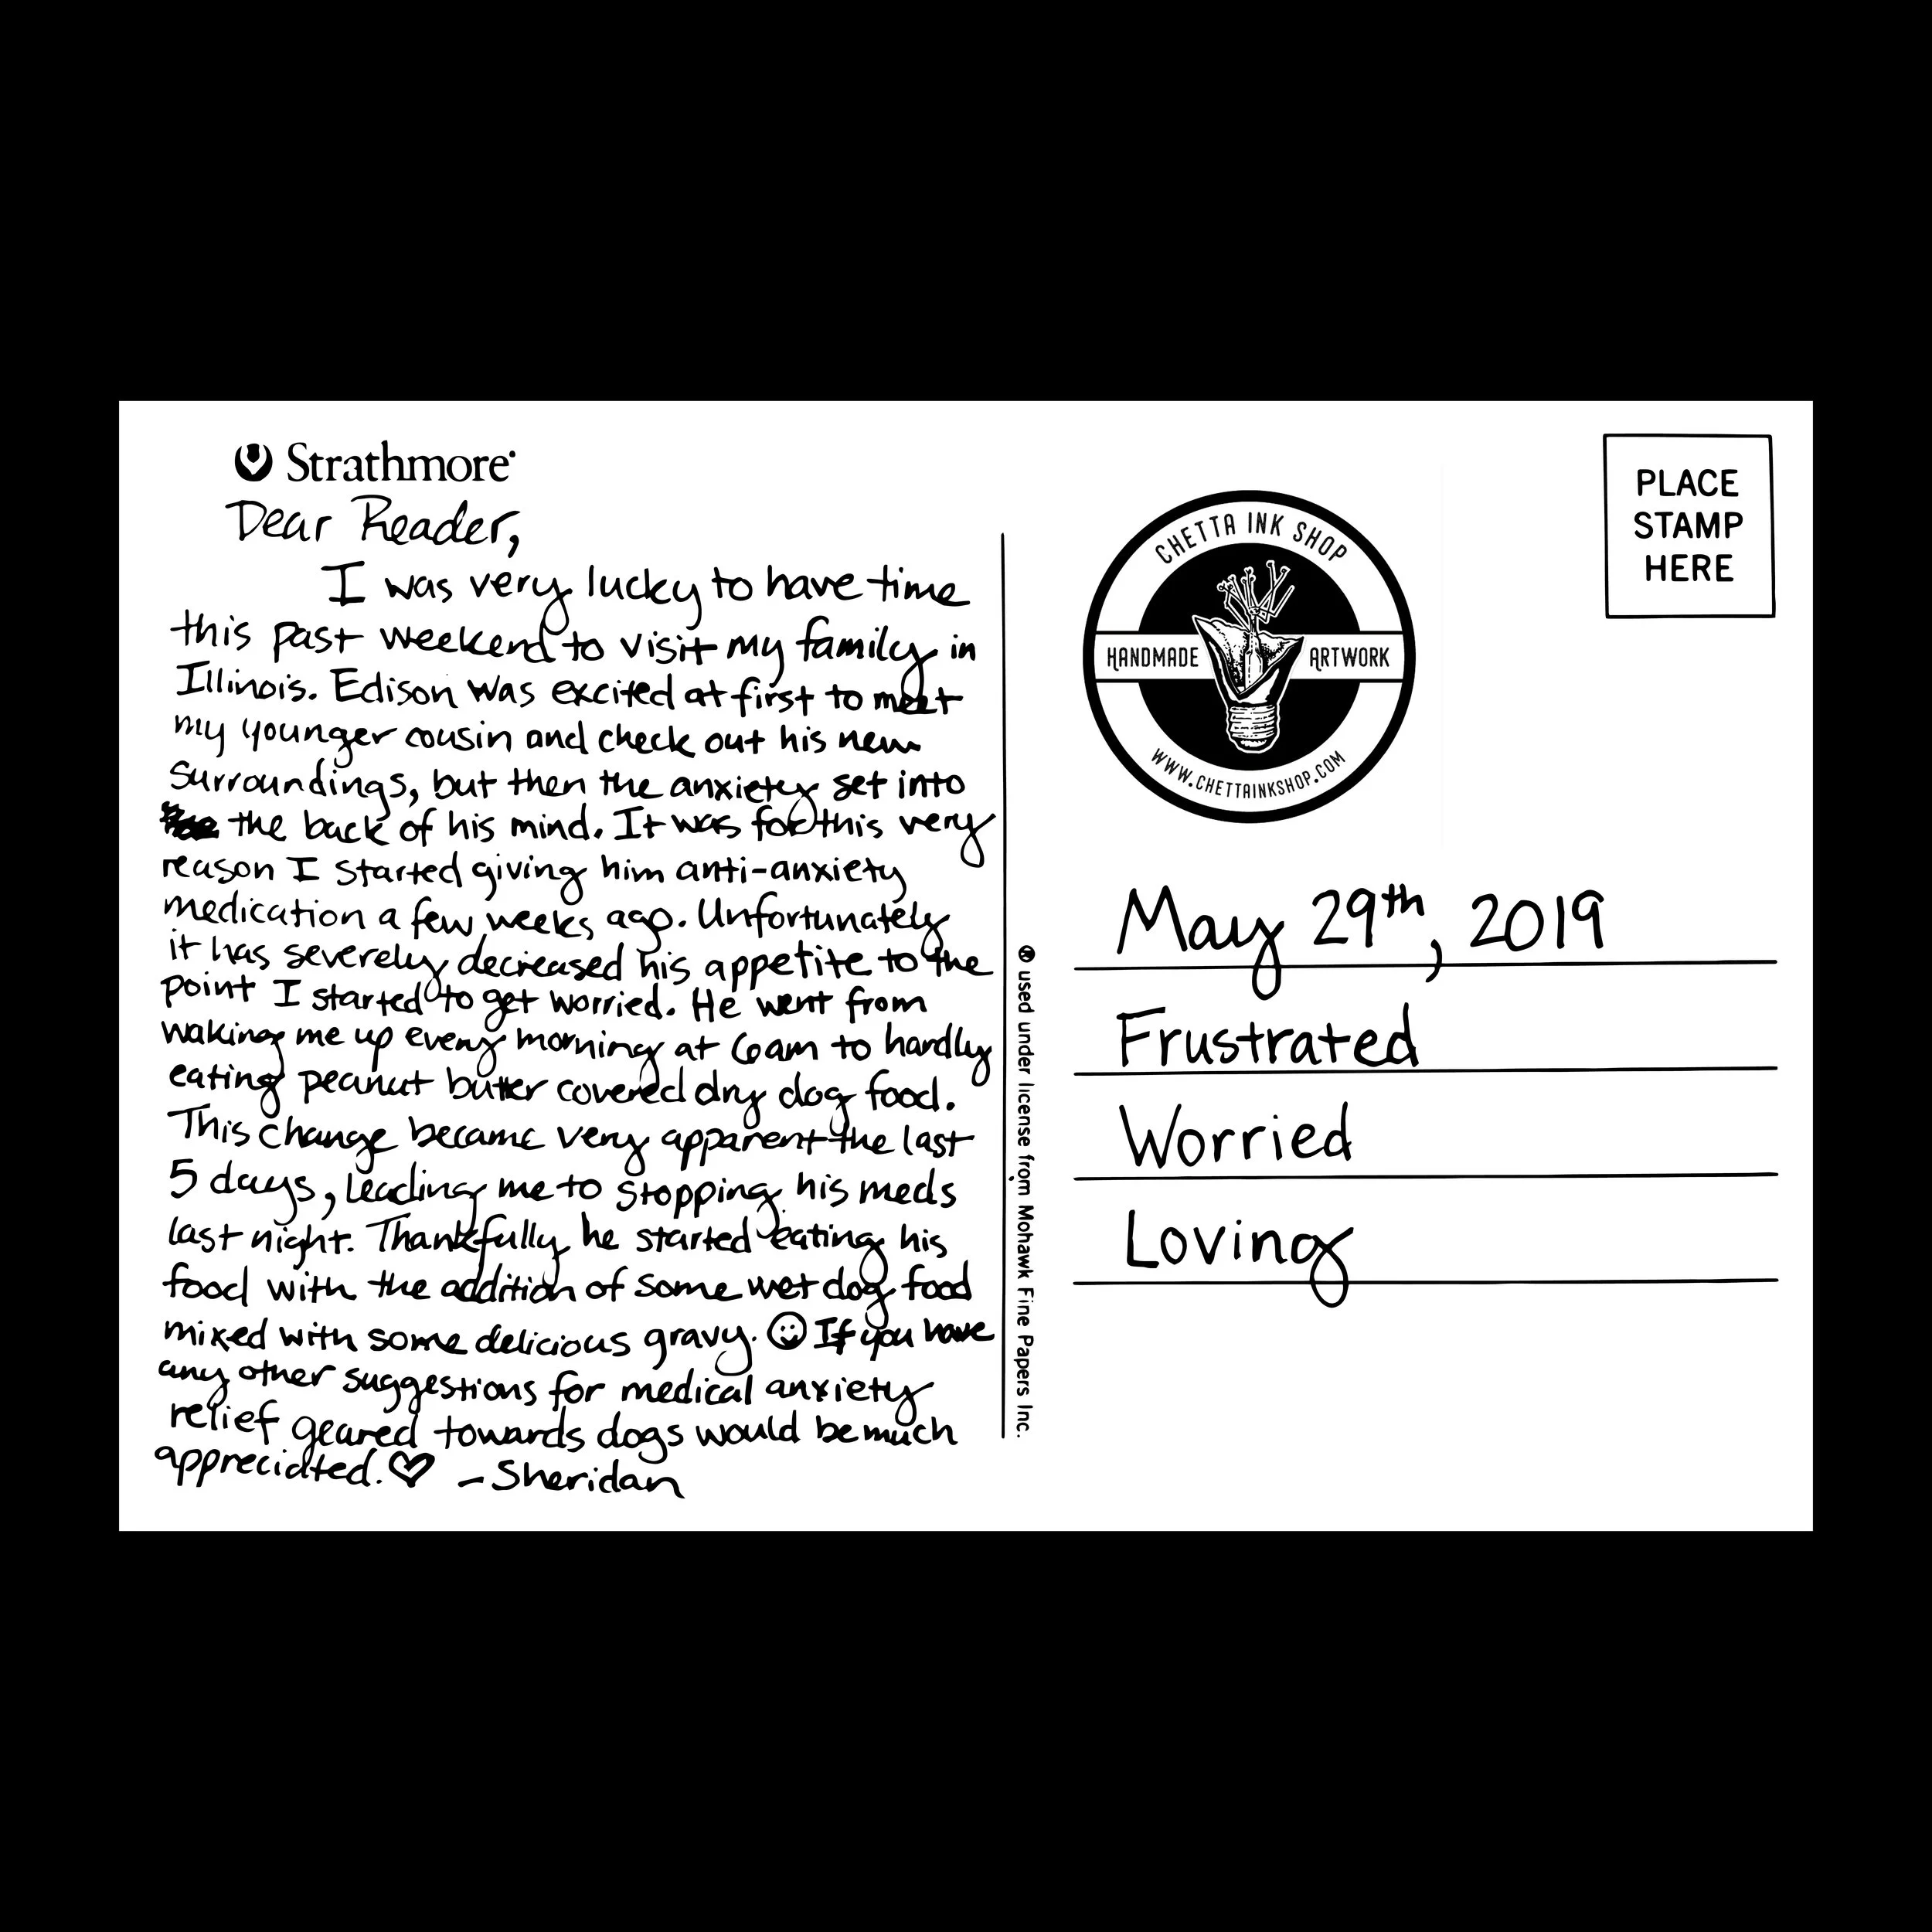 Strathmore
Dear Reader,
I was very lucky to have time
this past weekend to visit my family in
Illinois. Edison was excited at first to meet
my younger cousin and check out his new
surroundings, but then the anxiety set into
the back of his mind. It was for this very
reason I started giving him anti-anxiety
medication a few weeks ago. Unfortunately
it has severely decreased his appetite to the
point I started to get worried. He went from
waking me up every morning at 6am to hardly
eating peanut butter covered dry dog food.
This change became very apparent the last
5 days, leading me to stopping his meds
last night. Thankfully he started eating his
food with the addition of some wet dog food
mixed with some delicious gravy. ☺ If you have
any other suggestions for medical anxiety
relief geared towards dogs would be much
appreciated. ♡ -Sheridan
used under license from Mohawk Fine Papers Inc.
CHETTA INK SHOP
HANDMADE ARTWORK
WWW.CHETTAINKSHOP.COM
PLACE
STAMP
HERE
May 29th, 2019
Frustrated
Worried
Loving